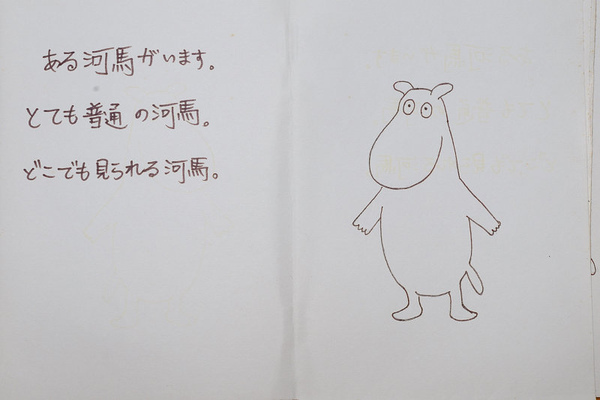 ある河馬がいます。
とても普通の河馬。
どこでも見られる河馬。